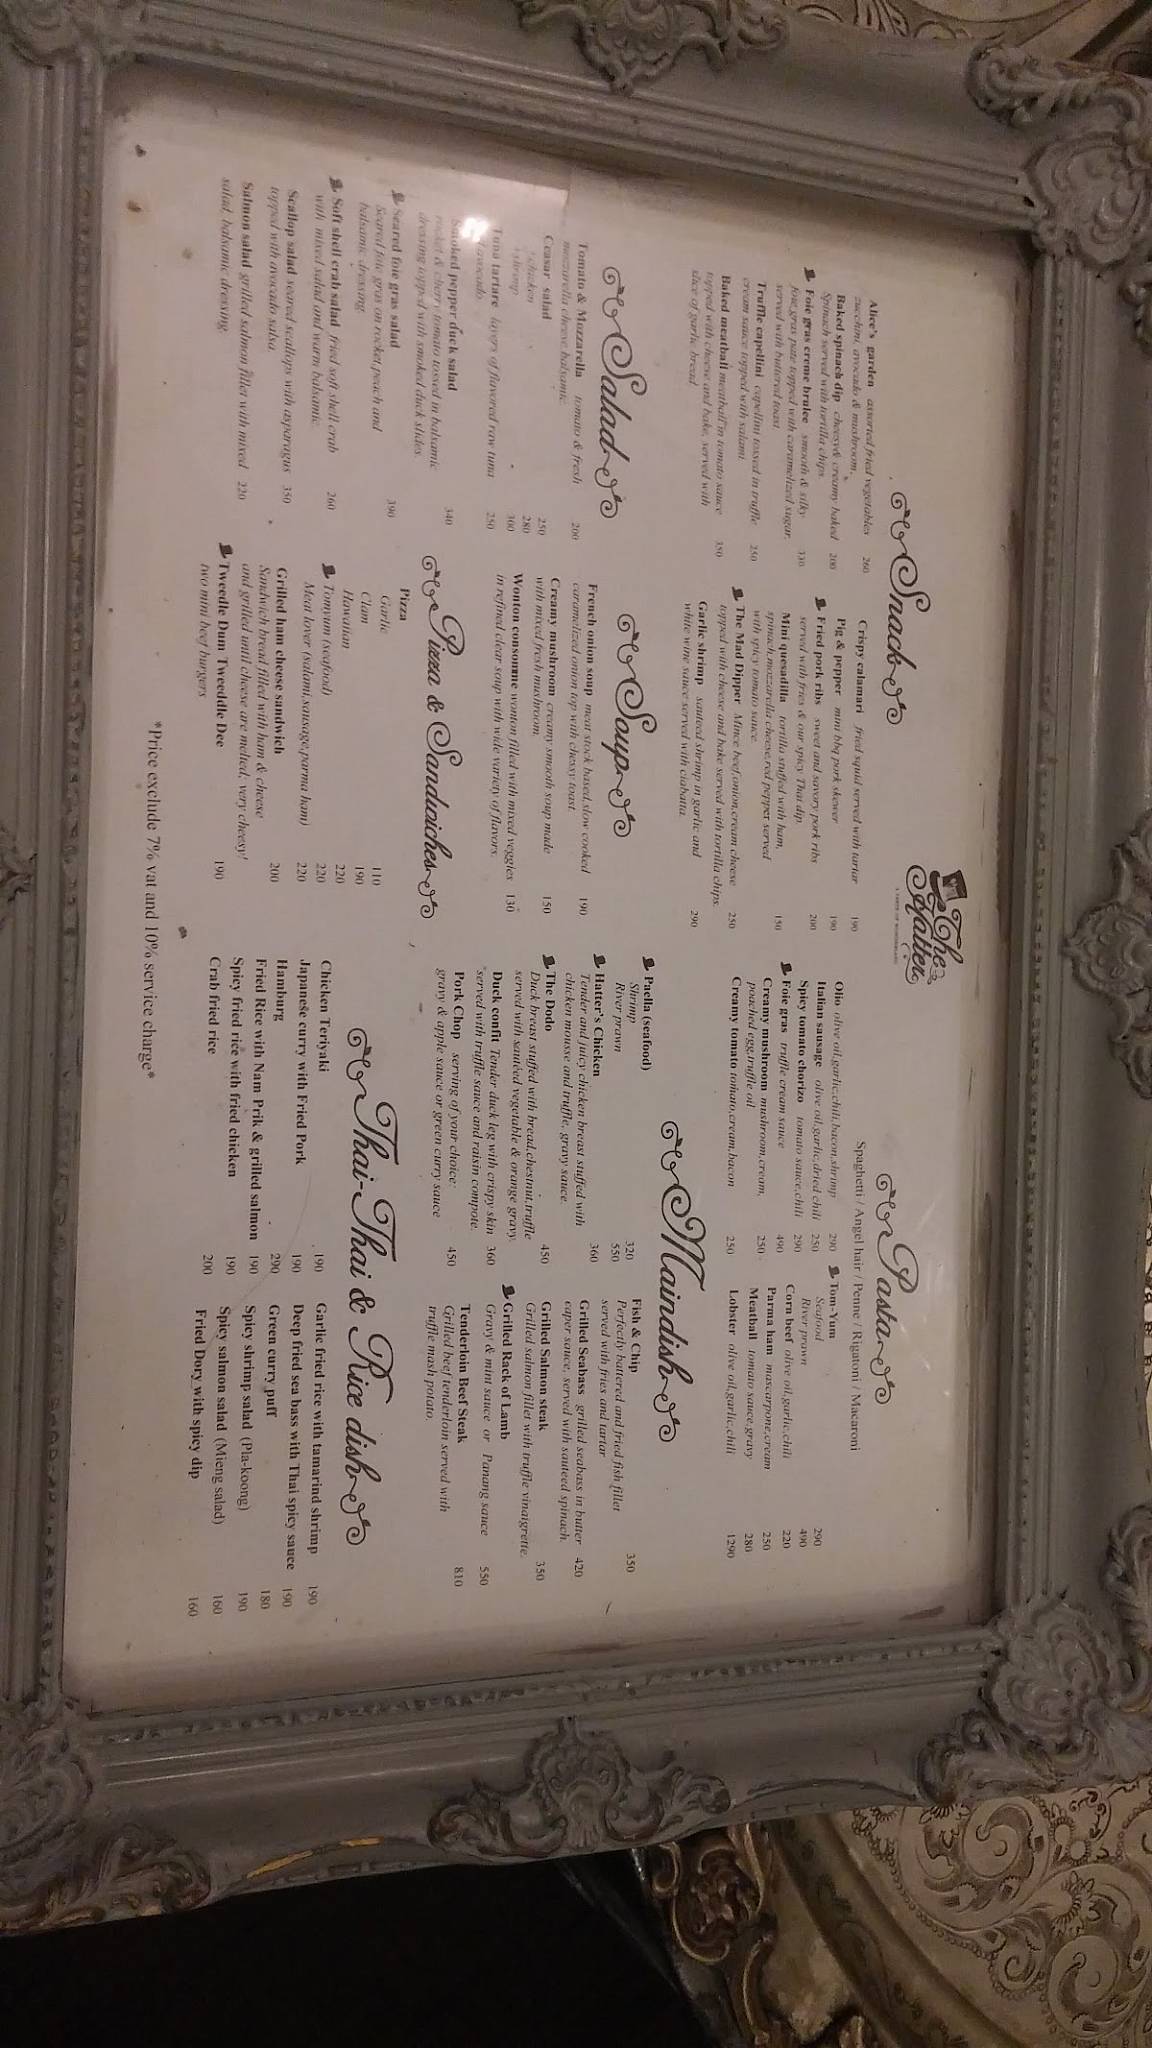 The Hatter
Snack
Alice's garden assorted fried vegetables 260
zucchini, avocado & mushroom.
Baked spinach dip cheesy& creamy baked 200
Spinach served with tortilla chips.
Foie gras creme brulee smooth & silky 330
foie gras pate topped with caramelized sugar,
served with buttered toast.
Truffle capellini capellini tossed in truffle 250
cream sauce topped with salami.
Baked meatball meatball in tomato sauce 350
topped with cheese and bake, served with
slice of garlic bread.
Crispy calamari fried squid served with tartar 190
Pig & pepper mini bbq pork skewer 190
Fried pork ribs sweet and savory pork ribs 200
served with fries & our spicy Thai dip.
Mini quesadilla tortilla stuffed with ham, 150
spinach,mozzarella cheese,red pepper served
with spicy tomato sauce.
The Mad Dipper Mince beef,onion,cream cheese 250
topped with cheese and bake served with tortilla chips.
Garlic shrimp sauteed shrimp in garlic and 290
white wine sauce served with ciabatta.
Salad
Tomato & Mozzarella tomato & fresh 200
mozzarella cheese,balsamic.
Ceasar salad 250
chicken 280
shrimp 300
Tuna tartare layers of flavored raw tuna 250
avocado.
Smoked pepper duck salad 340
rocket & cherry tomato tossed in balsamic
dressing topped with smoked duck slides.
Seared foie gras salad 390
Seared foie gras on rocket,peach and
balsamic dressing.
Soft shell crab salad fried soft shell crab 260
with mixed salad and warm balsamic.
Scallop salad seared scallops with asparagus 350
topped with avocado salsa.
Salmon salad grilled salmon fillet with mixed 220
salad, balsamic dressing.
Soup
French onion soup meat stock based,slow cooked 190
caramelized onion top with chessy toast.
Creamy mushroom creamy smooth soup made 150
with mixed fresh mushroom.
Wonton consomme wonton filled with mixed veggies 130
in refined clear soup with wide variety of flavors.
Pizza & Sandwiches
Pizza
Garlic 110
Clam 190
Hawaiian 220
Tomyum (seafood) 220
Meat lover (salami,sausage,parma ham) 220
Grilled ham cheese sandwich 200
Sandwich bread filled with ham & cheese
and grilled until cheese are melted, very cheesy!
Tweedle Dum Tweeddle Dee 190
two mini beef burgers
Pasta
Spaghetti / Angel hair / Penne / Rigatoni / Macaroni
Olio olive oil,garlic,chili,bacon,shrimp 290
Italian sausage olive oil,garlic,dried chili 250
Spicy tomato chorizo tomato sauce,chili 290
Foie gras truffle cream sauce 490
Creamy mushroom mushroom,cream, 250
poached egg,truffle oil
Creamy tomato tomato,cream,bacon 250
Tom-Yum
Seafood 290
River prawn 490
Corn beef olive oil,garlic,chili 220
Parma ham mascarpone,cream 250
Meatball tomato sauce,gravy 280
Lobster olive oil,garlic,chili 1290
Maindish
Paella (seafood)
Shrimp 320
River prawn 550
Hatter's Chicken 360
Tender and juicy chicken breast stuffed with
chicken mousse and truffle, gravy sauce.
The Dodo 450
Duck breast stuffed with bread,chestnut,truffle
served with sautéed vegetable & orange gravy.
Duck confit Tender duck leg with crispy skin 360
served with truffle sauce and raisin compote.
Pork Chop serving of your choice: 450
gravy & apple sauce or green curry sauce
Fish & Chip 350
Perfectly battered and fried fish fillet
served with fries and tartar
Grilled Seabass grilled seabass in butter 420
caper sauce, served with sauteed spinach.
Grilled Salmon steak 350
Grilled salmon fillet with truffle vinaigrette.
Grilled Rack of Lamb
Gravy & mint sauce or Panang sauce 550
Tenderloin Beef Steak 810
Grilled beef tenderloin served with
truffle mash potato.
Thai-Thai & Rice dish
Chicken Teriyaki 190
Japanese curry with Fried Pork 190
Hamburg 290
Fried Rice with Nam Prik & grilled salmon 190
Spicy fried rice with fried chicken 190
Crab fried rice 200
Garlic fried rice with tamarind shrimp 190
Deep fried sea bass with Thai spicy sauce 190
Green curry puff 180
Spicy shrimp salad (Pla-koong) 190
Spicy salmon salad (Mieng salad) 160
Fried Dory with spicy dip 160
*Price exclude 7% vat and 10% service charge*